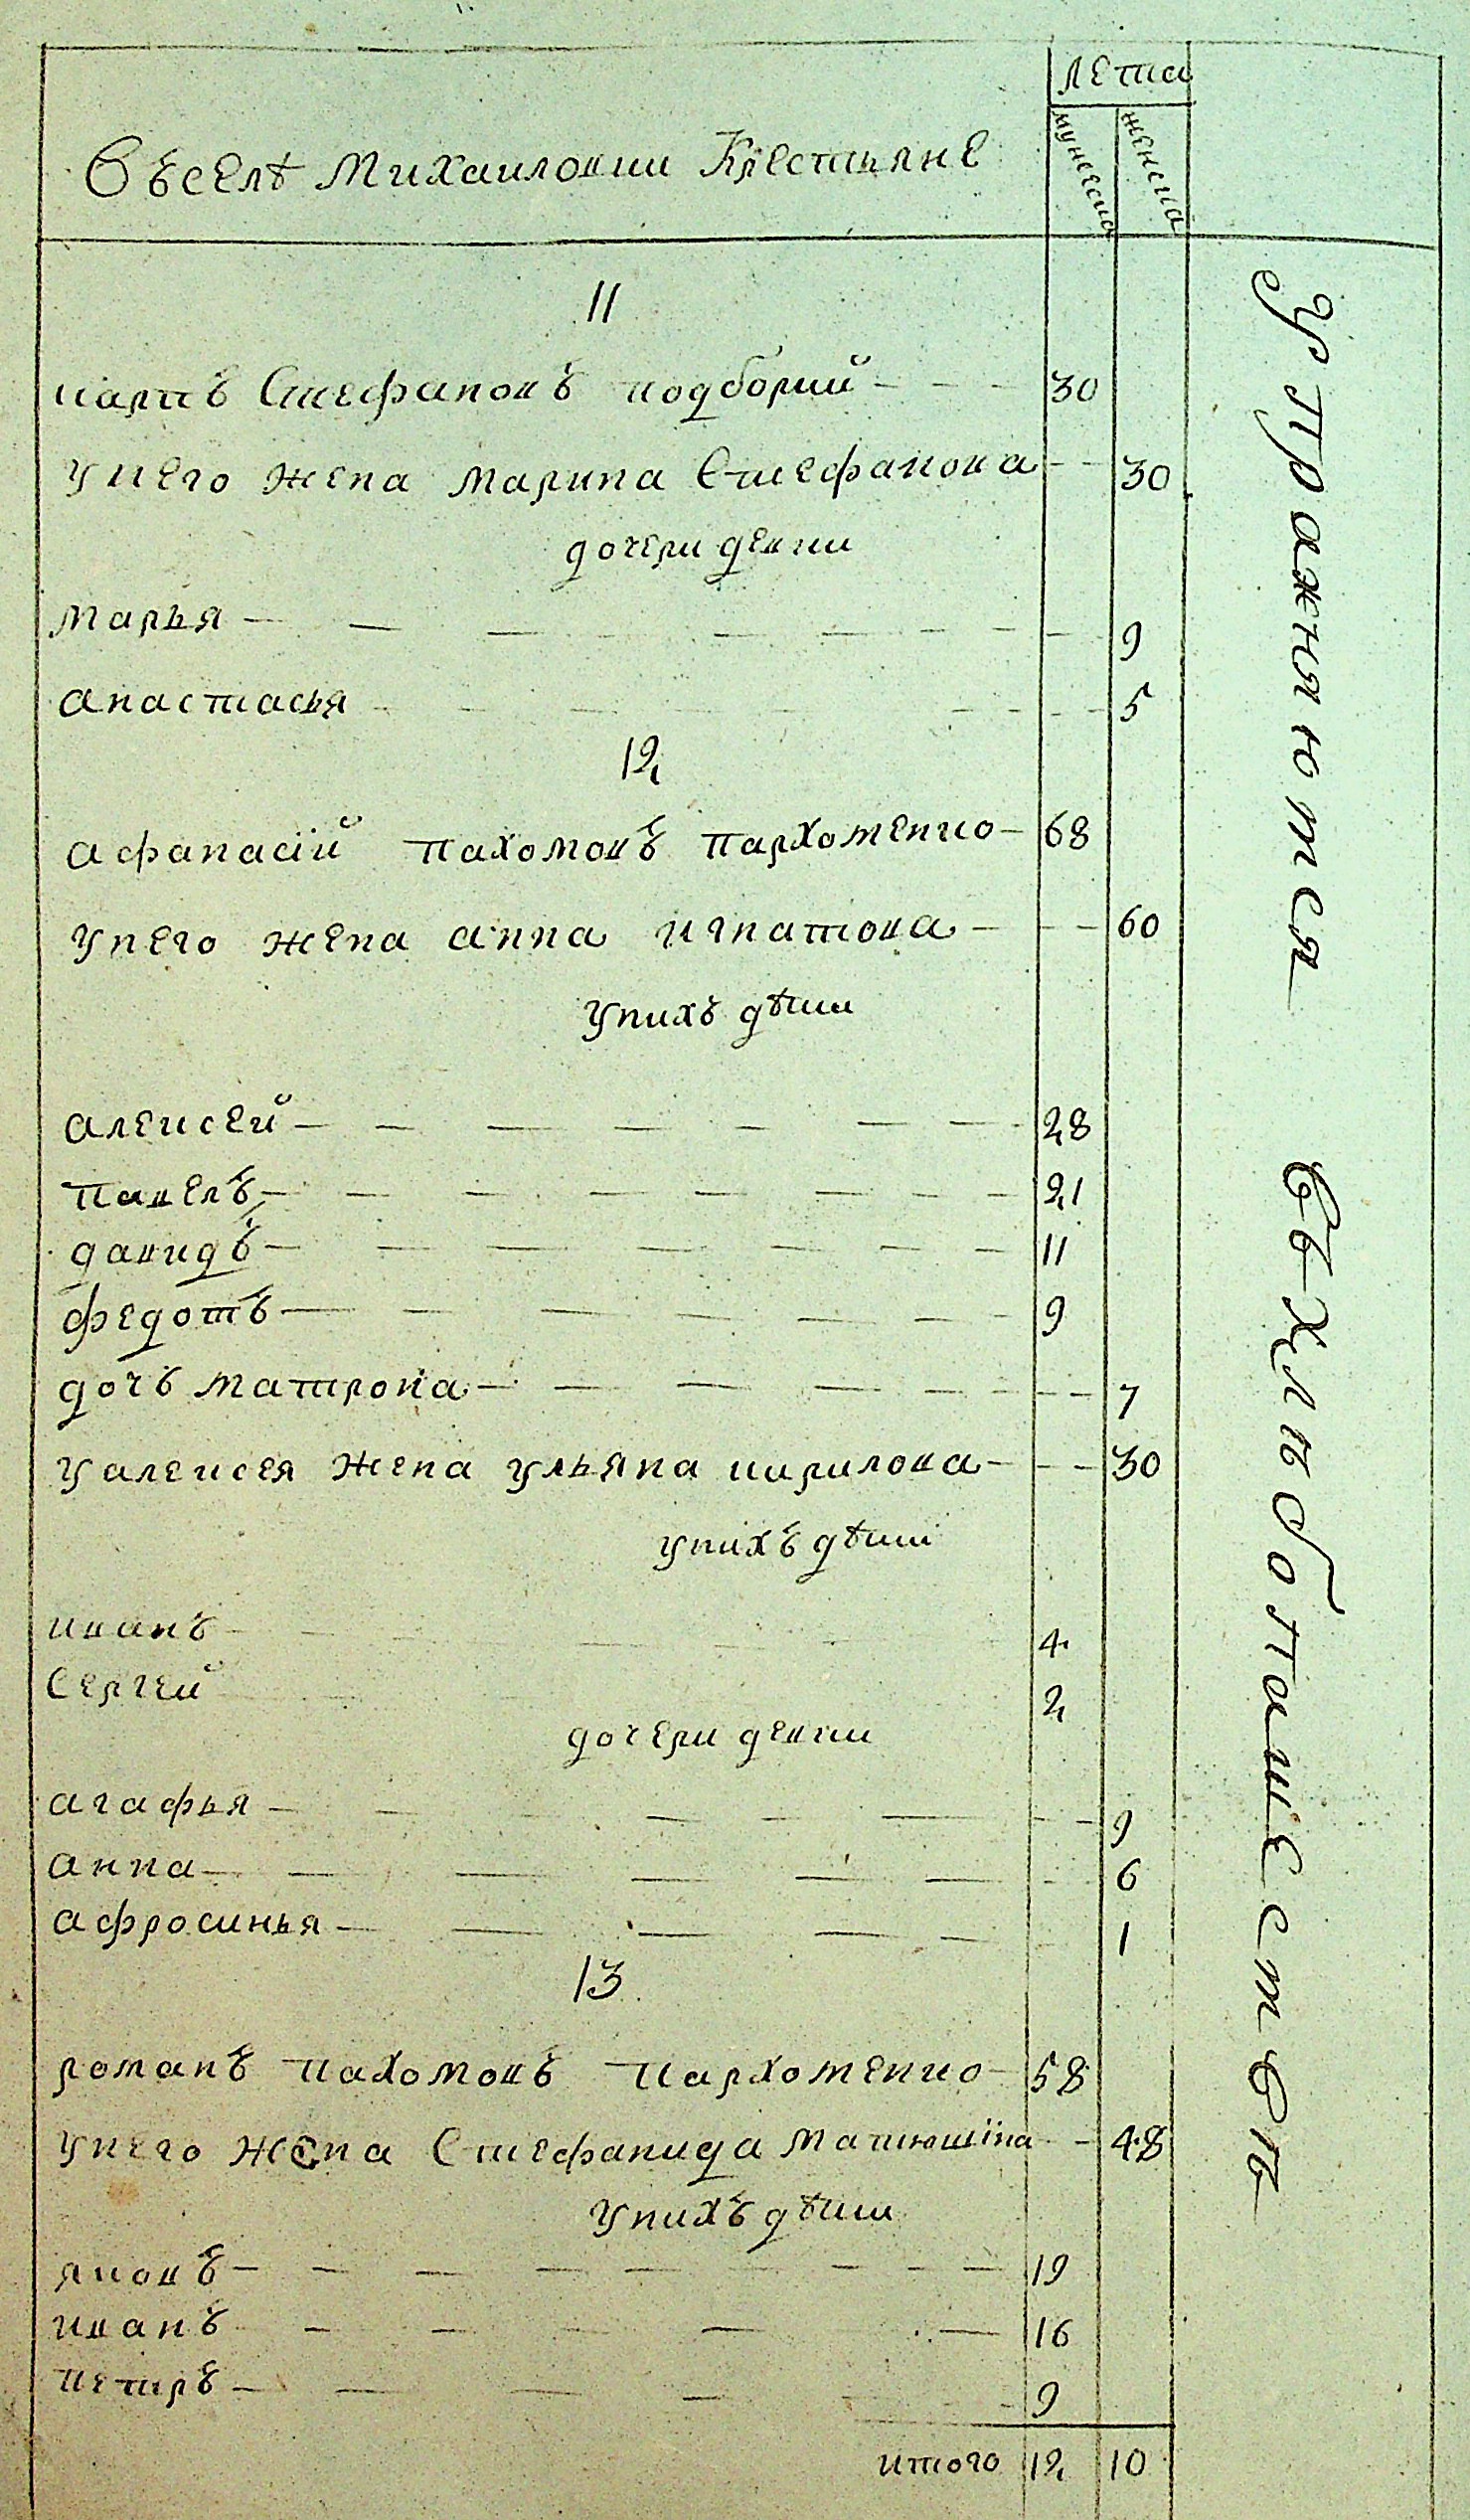 лета
мужеска
женска
Въ селѣ Михаиловки Крестьяне
11
карпъ Стефановъ подборий 30
у него жена марина Стефанова 30
дочери девки
марья 9
анастасья 5
12
афанасій пахомовъ пархоменко 68
у него жена анна игнатова 60
у нихъ дѣти
алексей 28
павелъ 21
давидъ 11
федотъ 9
дочь матрона 7
у алексея жена ульяна кирилова 30
у нихъ дѣти
иванъ 4
Сергей 2
дочери девки
агафья 9
анна 6
афросинья 1
13
романъ пахомовъ пархоменко 58
у него жена Стефанида матюшіна 48
у нихъ дѣти
яковъ 19
иванъ 16
петръ 9
итого 12 10
Упражняются въ хлѣбопашествѣ